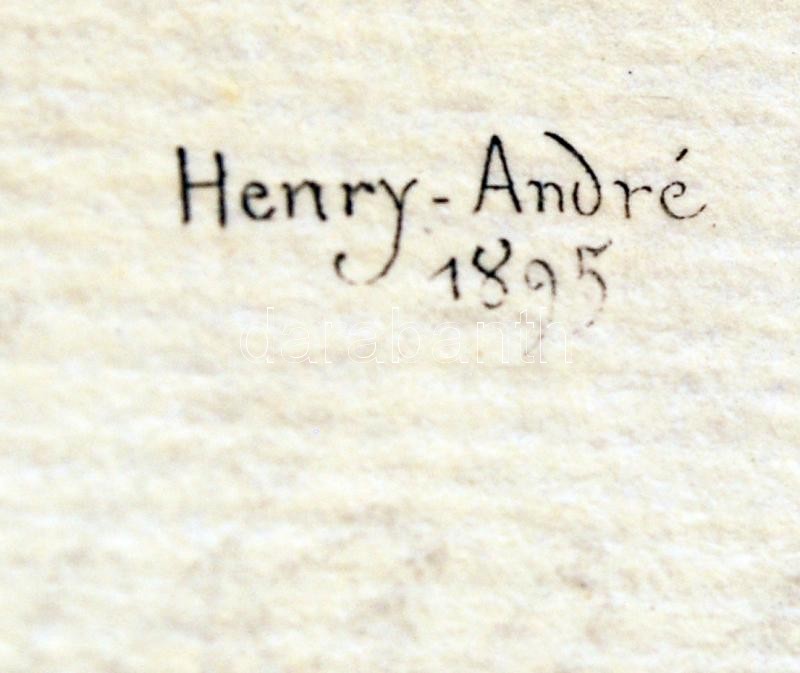 Henry-André
1895
darabanth